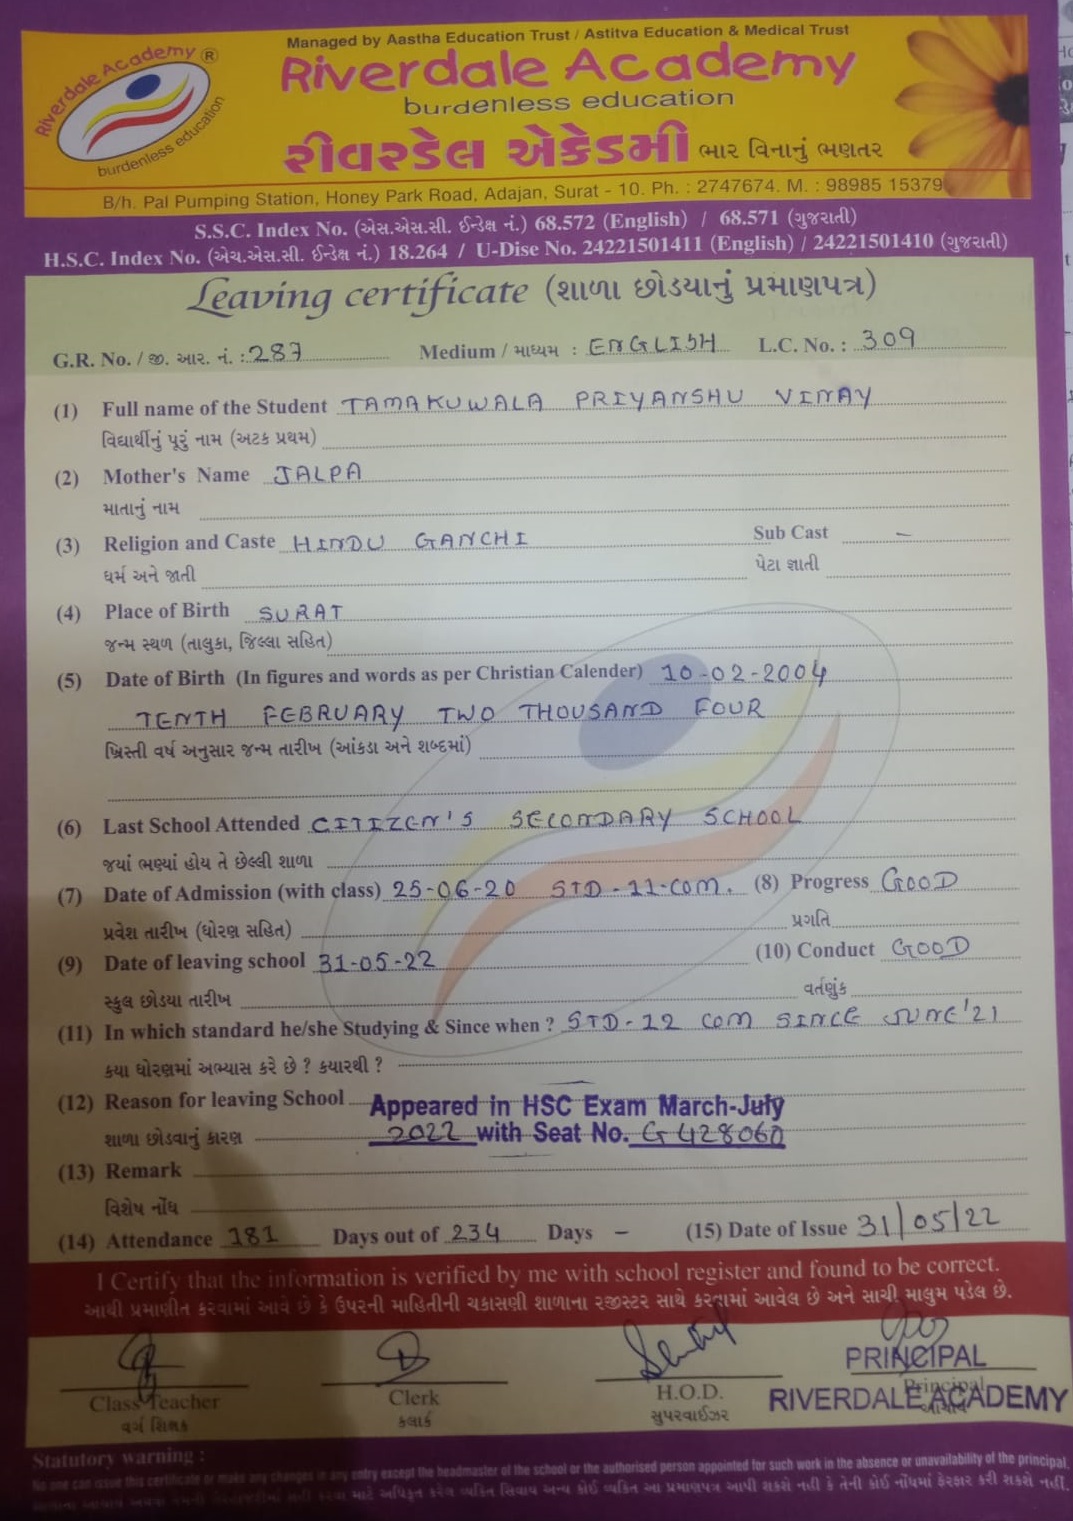 Managed by Aastha Education Trust / Astitva Education & Medical Trust
Riverdale Academy ®
burdenless education
Riverdale Academy
burdenless education
રીવરડેલ એકેડમી ભાર વિનાનું ભણતર
B/h. Pal Pumping Station, Honey Park Road, Adajan, Surat - 10. Ph. : 2747674. M. : 98985 15379
S.S.C. Index No. (એસ.એસ.સી. ઈન્ડેક્ષ નં.) 68.572 (English) / 68.571 (ગુજરાતી)
H.S.C. Index No. (એચ.એસ.સી. ઈન્ડેક્ષ નં.) 18.264 / U-Dise No. 24221501411 (English) / 24221501410 (ગુજરાતી)
Leaving certificate (શાળા છોડયાનું પ્રમાણપત્ર)
G.R. No. / જી. આર. નં. : 287 Medium / માધ્યમ : ENGLISH L.C. No. : 309
(1) Full name of the Student TAMAKUWALA PRIYANSHU VINAY
વિદ્યાર્થીનું પૂરું નામ (અટક પ્રથમ)
(2) Mother's Name JALPA
માતાનું નામ
(3) Religion and Caste HINDU GANCHI Sub Cast -
ધર્મ અને જાતી પેટા જ્ઞાતી
(4) Place of Birth SURAT
જન્મ સ્થળ (તાલુકા, જિલ્લા સહિત)
(5) Date of Birth (In figures and words as per Christian Calender) 10-02-2004
TENTH FEBRUARY TWO THOUSAND FOUR
ખ્રિસ્તી વર્ષ અનુસાર જન્મ તારીખ (આંકડા અને શબ્દમાં)
(6) Last School Attended CITIZEN'S SECONDARY SCHOOL
જયાં ભણ્યાં હોય તે છેલ્લી શાળા
(7) Date of Admission (with class) 25-06-20 STD-11-COM. (8) Progress GOOD
પ્રવેશ તારીખ (ધોરણ સહિત) પ્રગતિ
(9) Date of leaving school 31-05-22 (10) Conduct GOOD
સ્કુલ છોડયા તારીખ વર્તણુંક
(11) In which standard he/she Studying & Since when ? STD-12 COM SINCE JUNE'21
કયા ધોરણમાં અભ્યાસ કરે છે ? કયારથી ?
(12) Reason for leaving School Appeared in HSC Exam March-July
શાળા છોડવાનું કારણ 2022 with Seat No. G 428060
(13) Remark
વિશેષ નોંધ
(14) Attendance 181 Days out of 234 Days - (15) Date of Issue 31/05/22
I Certify that the information is verified by me with school register and found to be correct.
આથી પ્રમાણીત કરવામાં આવે છે કે ઉપરની માહિતીની ચકાસણી શાળાના રજીસ્ટર સાથે કરવામાં આવેલ છે અને સાચી માલુમ પડેલ છે.
Class Teacher Clerk H.O.D. Principal
વર્ગ શિક્ષક કલાર્ક સુપરવાઈઝર આચાર્ય
PRINCIPAL
RIVERDALE ACADEMY
Statutory warning :
No one can issue this certificate or make any changes in any entry except the headmaster of the school or the authorised person appointed for such work in the absence or unavailability of the principal.
માટે અધિકૃત કરેલ વ્યક્તિ સિવાય અન્ય કોઈ વ્યક્તિ આ પ્રમાણપત્ર આપી શકશે નહી કે તેની કોઈ નોંધમાં ફેરફાર કરી શકશે નહીં.